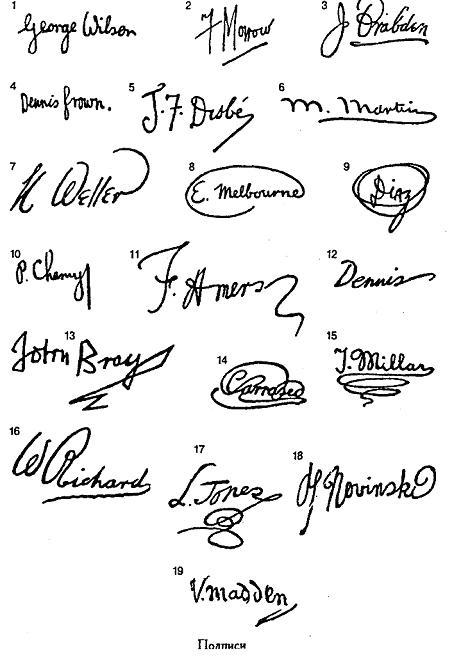 1 2 3
George Wilson F Morrow J Drabden
4 5 6
Dennis frown. J. F. Disbé M. Martin
7 8 9
K Weller E. Melbourne Diaz
10 11 12
P. Chemy F. Amers Dennis
13 14 15
John Bray Carrased J. Millar
16 17 18
W Richards L. Jones H. Novinski
19
V. madden
Подписи